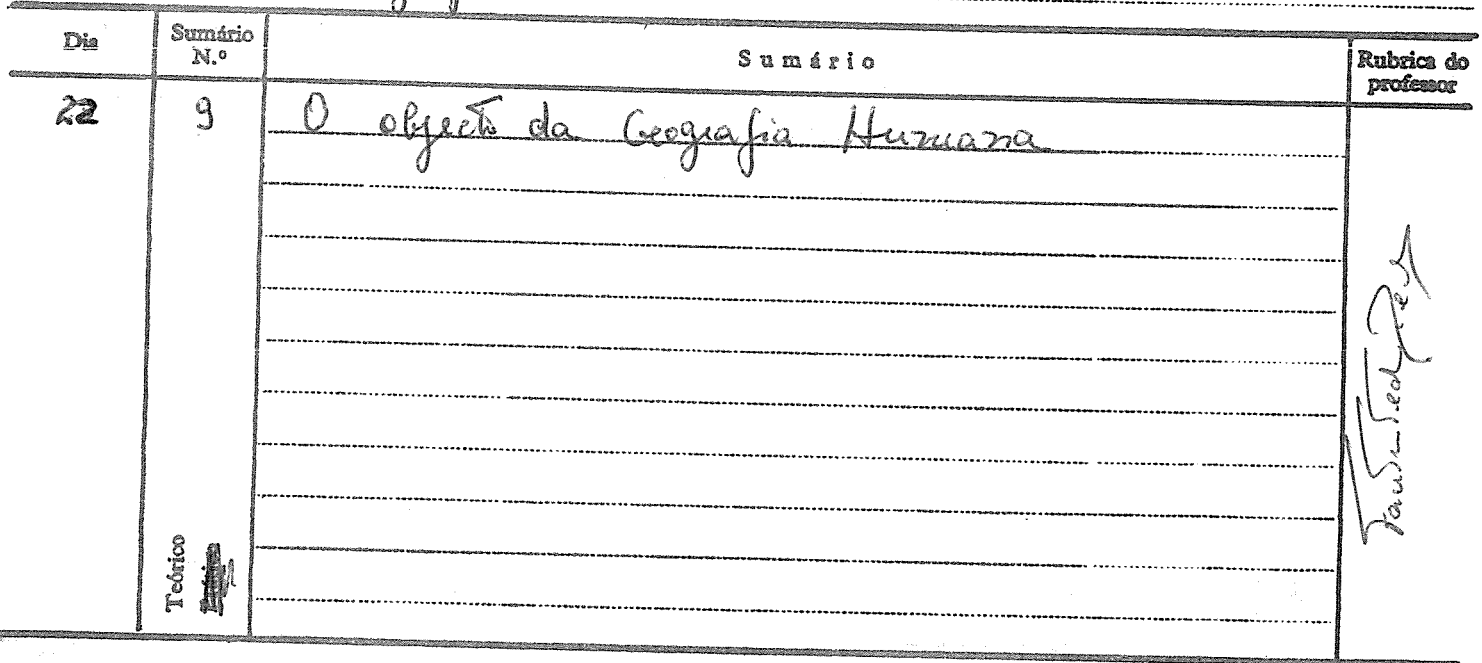 Dia
Sumário N.º
Sumário
Rubrica do professor
22
9
O objecto da Geografia Humana
Teórico